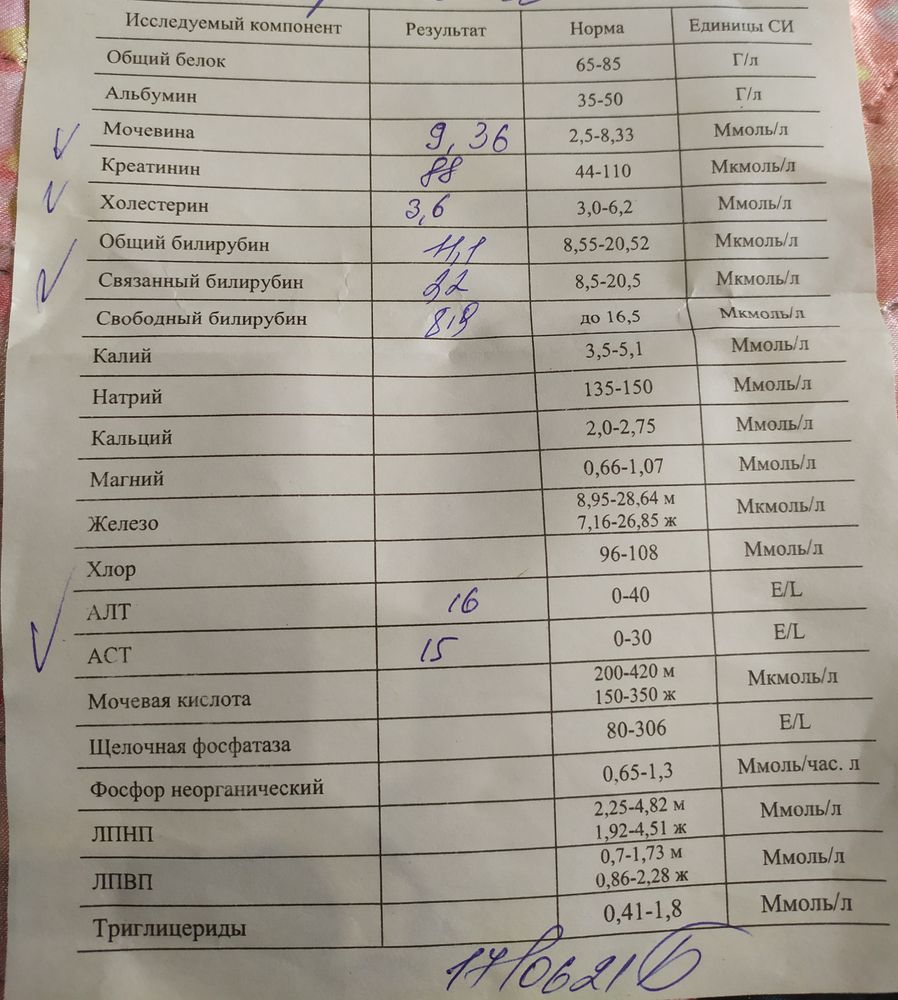 Исследуемый компонент Результат Норма Единицы СИ
Общий белок 65-85 Г/л
Альбумин 35-50 Г/л
Мочевина 9,36 2,5-8,33 Ммоль/л
Креатинин 88 44-110 Мкмоль/л
Холестерин 3,6 3,0-6,2 Ммоль/л
Общий билирубин 11,1 8,55-20,52 Мкмоль/л
Связанный билирубин 2,2 8,5-20,5 Мкмоль/л
Свободный билирубин 8,9 до 16,5 Мкмоль/л
Калий 3,5-5,1 Ммоль/л
Натрий 135-150 Ммоль/л
Кальций 2,0-2,75 Ммоль/л
Магний 0,66-1,07 Ммоль/л
Железо 8,95-28,64 м Мкмоль/л
7,16-26,85 ж
Хлор 96-108 Ммоль/л
АЛТ 16 0-40 E/L
АСТ 15 0-30 E/L
Мочевая кислота 200-420 м Мкмоль/л
150-350 ж
Щелочная фосфатаза 80-306 E/L
Фосфор неорганический 0,65-1,3 Ммоль/час. л
ЛПНП 2,25-4,82 м Ммоль/л
1,92-4,51 ж
ЛПВП 0,7-1,73 м Ммоль/л
0,86-2,28 ж
Триглицериды 0,41-1,8 Ммоль/л
17/0621